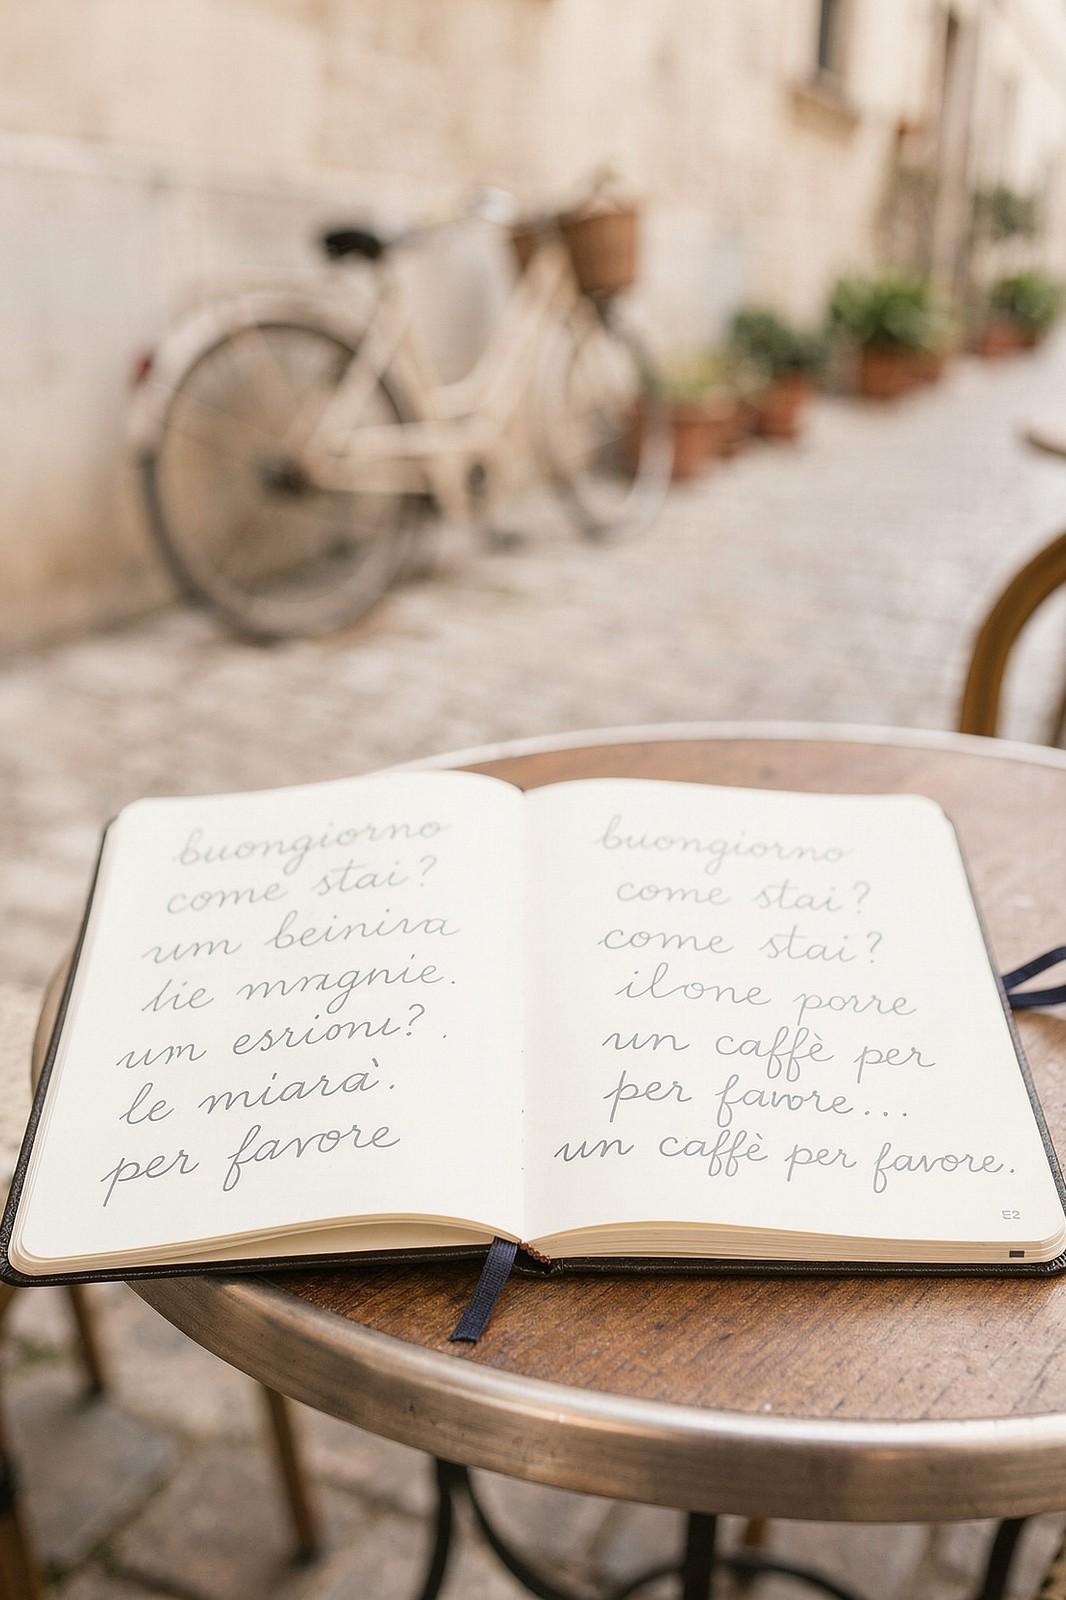 buongiorno
come stai?
um beinira
lie mragnie.
um esrionu?.
le miarà.
per favore
buongiorno
come stai?
come stai?
ilone porre
un caffè per
per favore...
un caffè per favore.
E2